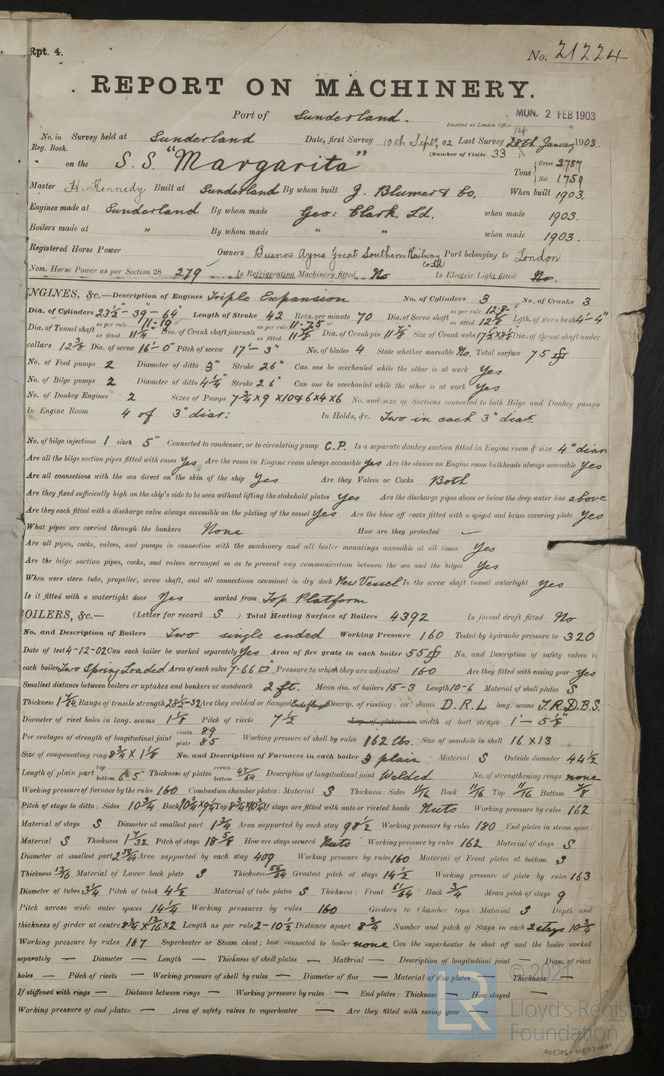 Rpt. 4.
No. 21224
REPORT ON MACHINERY.
Port of Sunderland.
Received at London Office MON. 2 FEB 1903
No. in Reg. Book. Survey held at Sunderland Date, first Survey 10th Septr. 02 Last Survey 28th January 1903.
(Number of Visits 33
on the S.S. "Margarita" Tons Gross 2787 Net 1759
Master H. Kennedy Built at Sunderland By whom built J. Blumer & Co. When built 1903.
Engines made at Sunderland By whom made Geo: Clark Ld. when made 1903.
Boilers made at " By whom made " " when made 1903.
Registered Horse Power Owners Buenos Ayres Great Southern Railway Co Ld Port belonging to London
Nom. Horse Power as per Section 28 279 Is Refrigerating Machinery fitted No Is Electric Light fitted No.
ENGINES, &c.—Description of Engines Triple Expansion No. of Cylinders 3 No. of Cranks 3
Dia. of Cylinders 23½"-39-64" Length of Stroke 42 Revs. per minute 70 Dia. of Screw shaft as per rule 12.8" as fitted Lgth. of stern bush 4'-4"
Dia. of Tunnel shaft as per rule 11.19 as fitted Dia. of Crank shaft journals as per rule 11.75 as fitted Dia. of Crank pin Size of Crank webs Dia. of thrust shaft under
collars Dia. of screw 16'-0" Pitch of screw 17'-3" No. of blades 4 State whether moveable No. Total surface 75
No. of Feed pumps 2 Diameter of ditto 3" Stroke 26" Can one be overhauled while the other is at work Yes
No. of Bilge pumps 2 Diameter of ditto 4¼" Stroke 26" Can one be overhauled while the other is at work Yes
No. of Donkey Engines 2 Sizes of Pumps No. and size of Suctions connected to both Bilge and Donkey pumps
In Engine Room 4 of 3" diar: In Holds, &c. Two in each 3" diar.
No. of bilge injections 1 sizes 5" Connected to condenser, or to circulating pump C.P. Is a separate donkey suction fitted in Engine room & size 4" diar
Are all the bilge suction pipes fitted with roses Yes Are the roses in Engine room always accessible Yes Are the sluices on Engine room bulkheads always accessible Yes
Are all connections with the sea direct on the skin of the ship Yes Are they Valves or Cocks Both
Are they fixed sufficiently high on the ship's side to be seen without lifting the stokehold plates Yes Are the discharge pipes above or below the deep water line above
Are they each fitted with a discharge valve always accessible on the plating of the vessel Yes Are the blow off cocks fitted with a spigot and brass covering plate Yes
What pipes are carried through the bunkers None How are they protected
Are all pipes, cocks, valves, and pumps in connection with the machinery and all boiler mountings accessible at all times Yes
Are the bilge suction pipes, cocks, and valves arranged so as to prevent any communication between the sea and the bilges Yes
When were stern tube, propeller, screw shaft, and all connections examined in dry dock New Vessel Is the screw shaft tunnel watertight Yes
Is it fitted with a watertight door Yes worked from Top Platform
BOILERS, &c.— (Letter for record S ) Total Heating Surface of Boilers 4392 Is forced draft fitted No
No. and Description of Boilers Two single ended Working Pressure 160 Tested by hydraulic pressure to 320
Date of test 4-12-02 Can each boiler be worked separately Yes Area of fire grate in each boiler 55 No. and Description of safety valves to
each boiler Two Spring Loaded Area of each valve 7.66 Pressure to which they are adjusted 160 Are they fitted with easing gear Yes
Smallest distance between boilers or uptakes and bunkers or woodwork 2 ft. Mean dia. of boilers 15-3 Length 10-6 Material of shell plates S
Thickness Range of tensile strength 28½-32 Are they welded or flanged Descrip. of riveting: cir. seams D.R.L long. seams T.R.D.B.S.
Diameter of rivet holes in long. seams 1⅛ Pitch of rivets 7½ Lap of plates or width of butt straps
Per centages of strength of longitudinal joint rivets 89 plate 85 Working pressure of shell by rules 162 lbs. Size of manhole in shell 16 x 13
Size of compensating ring 8¾ x 1⅛ No. and Description of Furnaces in each boiler 3 plain Material S Outside diameter 44½
Length of plain part top bottom Thickness of plates crown bottom Description of longitudinal joint Welded No. of strengthening rings none
Working pressure of furnace by the rules 160 Combustion chamber plates: Material S Thickness: Sides Back Top Bottom
Pitch of stays to ditto: Sides 10¾ Back Top If stays are fitted with nuts or riveted heads Nuts Working pressure by rules 162
Material of stays S Diameter at smallest part 1¾ Area supported by each stay 98½ Working pressure by rules 180 End plates in steam space
Material S Thickness Pitch of stays How are stays secured Nuts Working pressure by rules 162 Material of stays S
Diameter at smallest part Area supported by each stay 409 Working pressure by rules 160 Material of Front plates at bottom S
Thickness Material of Lower back plate S Thickness Greatest pitch of stays 14½ Working pressure of plate by rules 163
Diameter of tubes 3¼ Pitch of tubes 4½ Material of tube plates S Thickness: Front Back ¾ Mean pitch of stays 9
Pitch across wide water spaces 14¼ Working pressures by rules 160 Girders to Chamber tops: Material S Depth and
thickness of girder at centre Length as per rule 2-10½ Distance apart 8¾ Number and pitch of Stays in each 2 stays 10¾
Working pressure by rules 167 Superheater or Steam chest; how connected to boiler none Can the superheater be shut off and the boiler worked
separately — Diameter — Length — Thickness of shell plates — Material — Description of longitudinal joint — Diam. of rivet
holes — Pitch of rivets — Working pressure of shell by rules — Diameter of flue — Material of flue plates — Thickness —
If stiffened with rings — Distance between rings — Working pressure by rules — End plates: Thickness — How stayed —
Working pressure of end plates — Area of safety valves to superheater — Are they fitted with easing gear —
© 2021
LR
Lloyd's Register
Foundation